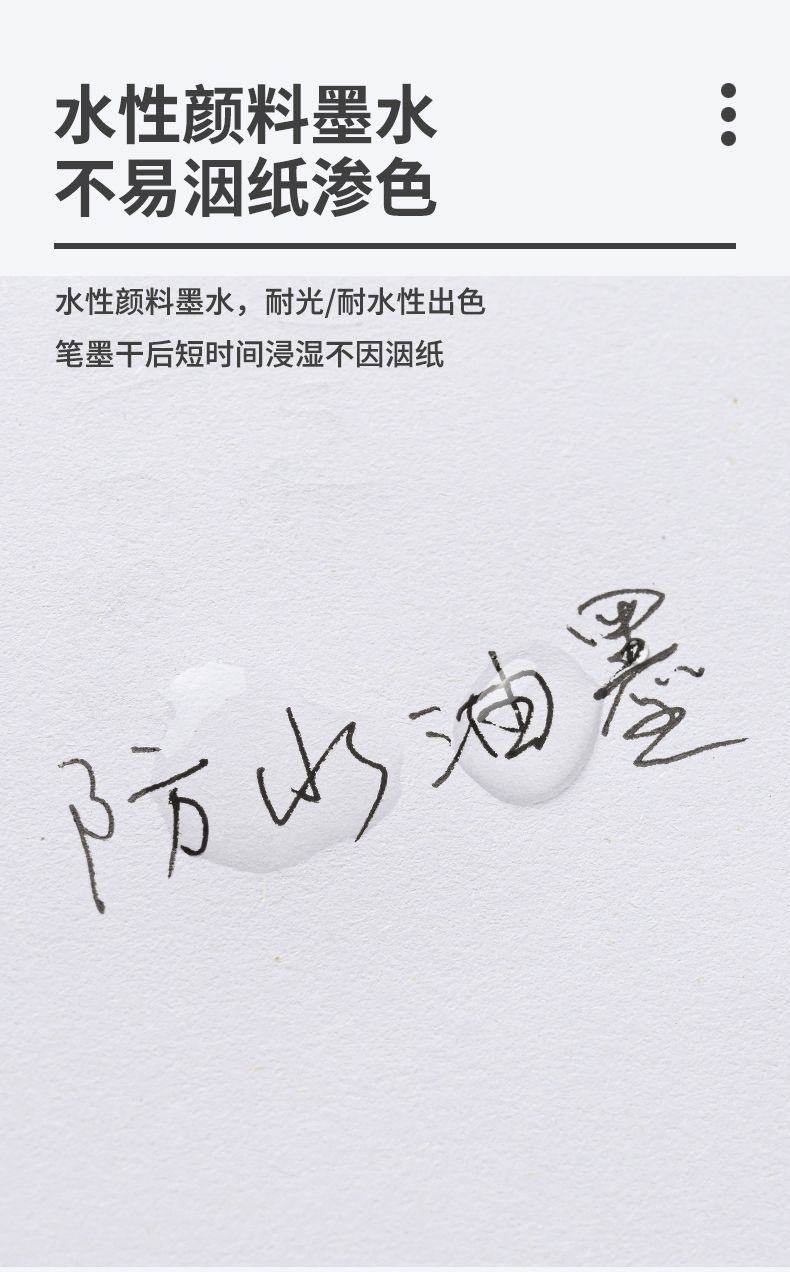 水性颜料墨水
不易洇纸渗色
水性颜料墨水，耐光/耐水性出色
笔墨干后短时间浸湿不因洇纸
防水油墨